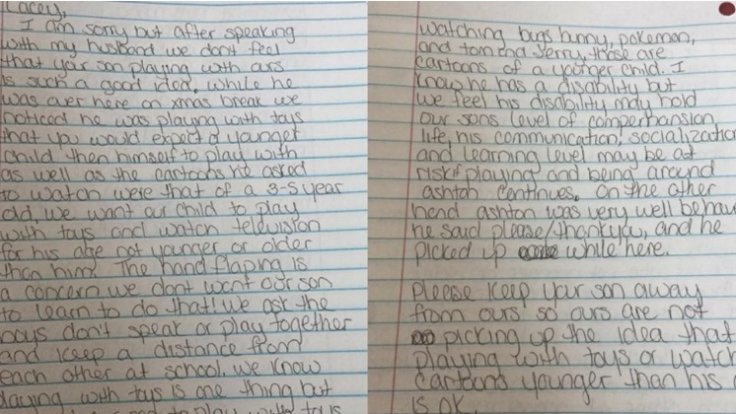 Lacey,
I am sorry but after speaking
with my husband we dont feel
that your son playing with ours
is such a good idea. while he
was over here on xmas break we
noticed he was playing with toys
that you would expect a younger
child then himself to play with
as well as the cartoons he asked
to watch were that of a 3-5 year
old, we want our child to play
with toys and watch television
for his age not younger or older
than him. The hand flaping is
a concern we dont want our son
to learn to do that! we ask the
boys don't speak or play together
and keep a distance from
each other at school. we know
playing with toys is one thing but
to play with toys
watching bugs bunny, pokemon,
and tom and Jerry, those are
cartoons of a younger child. I
know he has a disability but
we feel his disability may hold
our sons level of comperhansion,
life, his communication, socialization
and learning level may be at
risk if playing and being around
ashton continues. on the other
hand ashton was very well behav
he said please/thankyou, and he
picked up while here.
Please keep your son away
from ours so ours are not
picking up the idea that
playing with toys or watch
cartoons younger than his
is ok.